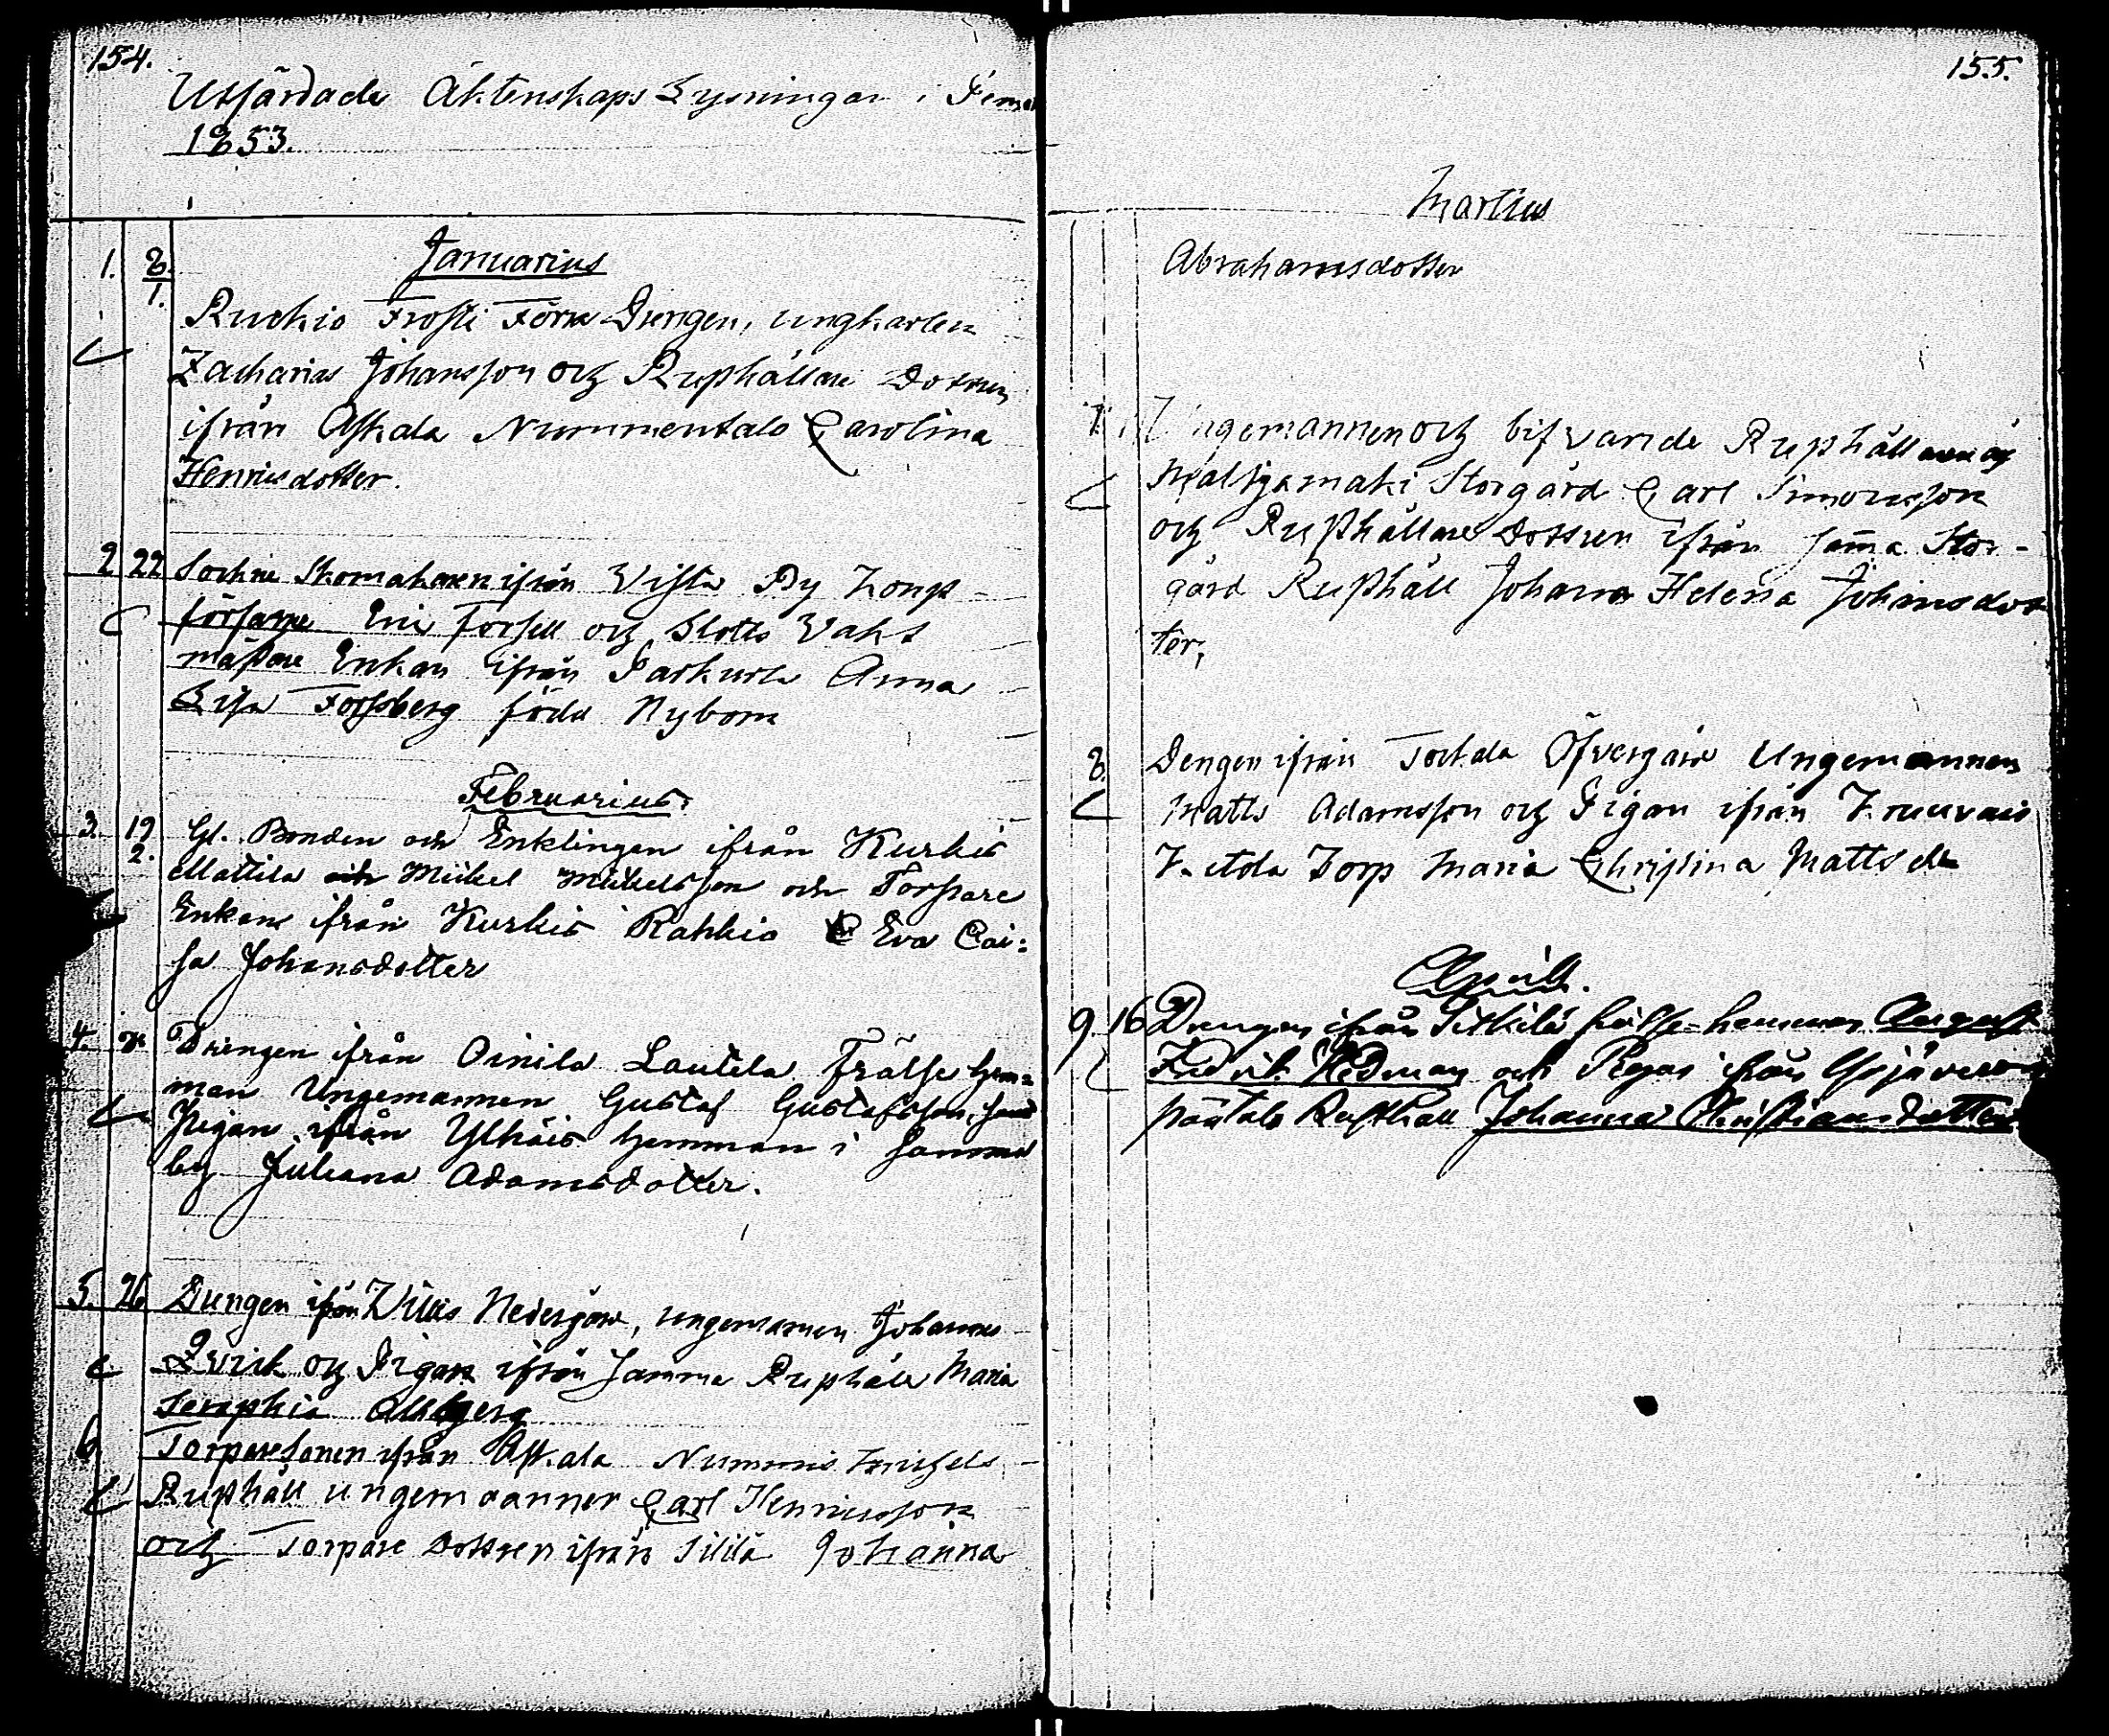 154.
Utfärdade Äktenskaps Lysningar i Pemar
1853.
Januarius
1. 8/1.
Ruckio Frosti Förra Drengen, ungkarlen
Zacharias Johansson och Rusthållare Dottren
ifrån Askala Nummentalo Carolina
Henricsdotter.
2 22 Sockne Skomakaren ifrån Vista By
Eric Forsell och Slotts Vakt
mästare Enkan ifrån Parkurla Anna
Lisa Forssberg född Nybom
Februarius.
3. 19/2. Gl. Bonden och Enklingen ifrån Kurkis
Mattila Mickel Mickelsson och Torpare
Enkan ifrån Kurkis Rahkio Eva Cai=
sa Johansdotter
4. Drengen ifrån Oinila Lautela Frälse hem=
man Ungemannen Gustaf Gustafsson, samt
Pigan ifrån Ylhäis hemman i samma
by Juliana Adamsdotter.
5. 26 Drengen ifrån Willis Nedergård, ungemannen Johannes
Qvick och Pigan ifrån samma Rusthåll Maria
Seraphia Ahlberg
6. Torparesonen ifrån Askala Nummis
Rusthåll ungemannen Carl Henricsson
och Torpare Dottren ifrån Sillilä Johanna
155.
Martius
Abrahamsdotter
7. Ungemannen och bifvarande Rusthållaren af
Maltjamäki Storgård Carl Simonsson
och Rusthållare Dottren ifrån samma Stor-
gård Rusthåll Johanna Helena Johansdot
ter,
8. Dengen ifrån Tortala Öfvergård Ungemannen
Matts Adamsson och Pigan ifrån
Torp Maria Christina Mattsdr
April.
9. 16 Drengen ifrån frälse-hemman August
Fredrik Hedman och Pigan ifrån
Rusthåll Johanna Christiansdotter